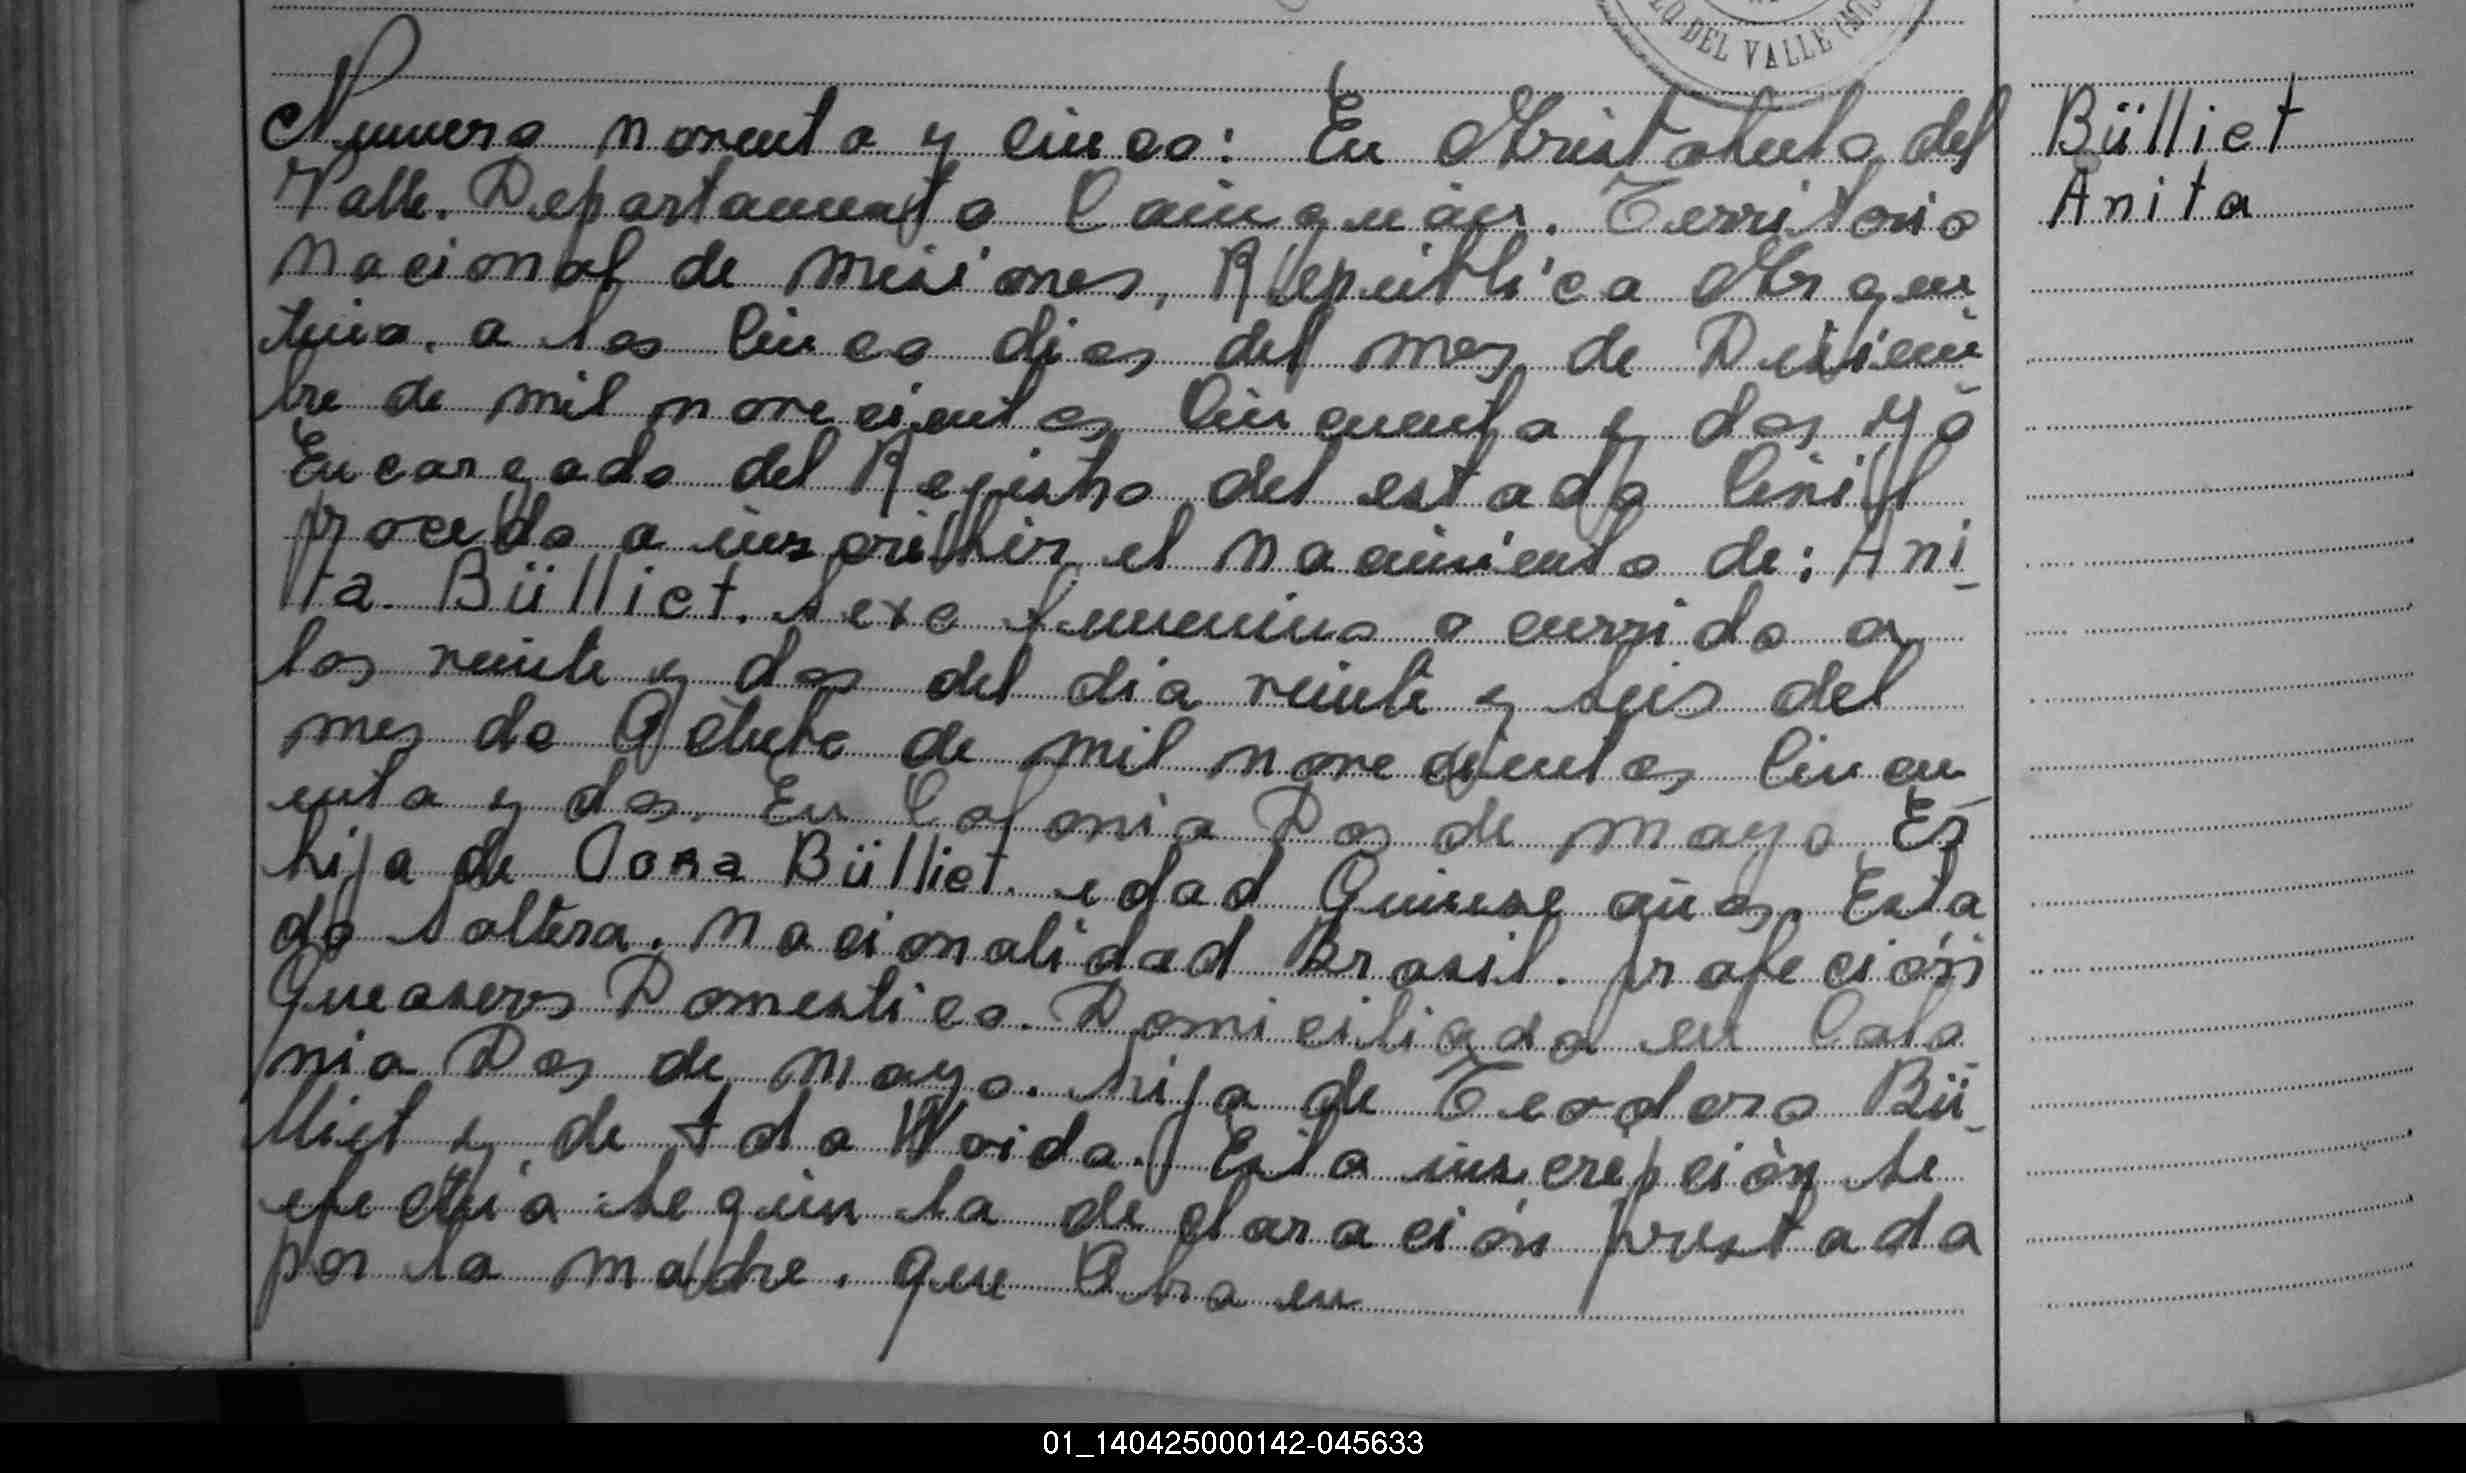 LO DEL VALLE (MIS
Numero noventa y cinco: En Aristobulo del
Valle. Departamento Cainguás. Territorio
Nacional de misiones, República Argen
tina, a los Cinco dias del mes de Disiem
bre de mil novecientos Cincuenta y dos Yó
Encargado del Registro del estado Civil
procedo a inscribir el Nacimiento de; Ani
ta. Bülliet. Sexo femenino ocurrido a
las veinte y dos del dia veinte y seis del
mes de Octubre de mil novecientos Cincu
enta y dos. En Colonia Dos de mayo Es
hija de Dora Bülliet. edad Quinse años. Esta
do Soltera. Nacionalidad Brasil. profeción
Queaseres Domestico. Domiciliada en Colo
nia Dos de mayo. hija de Teodoro Bü
lliet y de Ida Woida. Esta inscrepción se
efectúa según la declaración prestada
por la madre. que Obra en
Bülliet
Anita
01_140425000142-045633